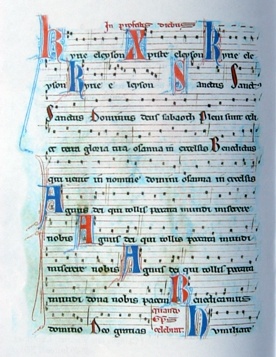 In profestis diebus
Kyrie eleyson Xpiste eleyson Kyrie ele
yson Kyrie e leyson Sanctus Sanct
Sanctus Dominus deus sabaoth Pleni sunt celi
et terra gloria tua osanna in excelsis Benedictus
qui uenit in nomine domini osanna in excelsis
Agnus dei qui tollis pccata mundi miserere
nobis Agnus dei qui tollis pccata mundi
miserere nobis Agnus dei qui tollis pccata
mundi dona nobis pacem Benedicamus
domino Deo gracias quando eps celebrat Humiliate